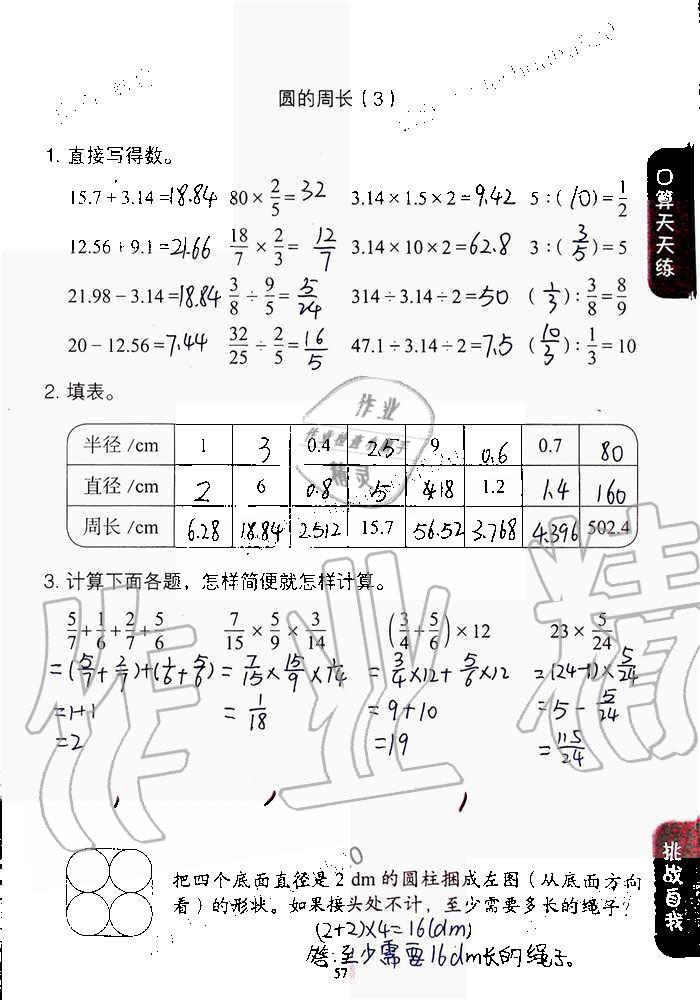 圆的周长(3)
1. 直接写得数。
15.7+3.14=18.84 80×2/5=32 3.14×1.5×2=9.42 5:(10)=1/2
12.56+9.1=21.66 18/7×2/3=12/7 3.14×10×2=62.8 3:(3/5)=5
21.98-3.14=18.84 3/8÷9/5=5/24 314÷3.14÷2=50 (1/3):3/8=8/9
20-12.56=7.44 32/25÷2/5=16/5 47.1÷3.14÷2=7.5 (10/3):1/3=10
口算天天练
2. 填表。
半径/cm 1 3 0.4 2.5 9 0.6 0.7 80
直径/cm 2 6 0.8 5 18 1.2 1.4 160
周长/cm 6.28 18.84 2.512 15.7 56.52 3.768 4.396 502.4
3. 计算下面各题，怎样简便就怎样计算。
5/7+1/6+2/7+5/6 7/15×5/9×3/14 (3/4+5/6)×12 23×5/24
=(5/7+2/7)+(1/6+5/6) =7/15×15/9×1/14 =3/4×12+5/6×12 =(24-1)×5/24
=1+1 =1/18 =9+10 =5-5/24
=2 =19 =115/24
挑战自我
把四个底面直径是2 dm的圆柱捆成左图(从底面方向
看)的形状。如果接头处不计，至少需要多长的绳子?
(2+2)×4=16(dm)
答:至少需要16dm长的绳子。
57
作业
作业检查小帮手
精灵
作业精